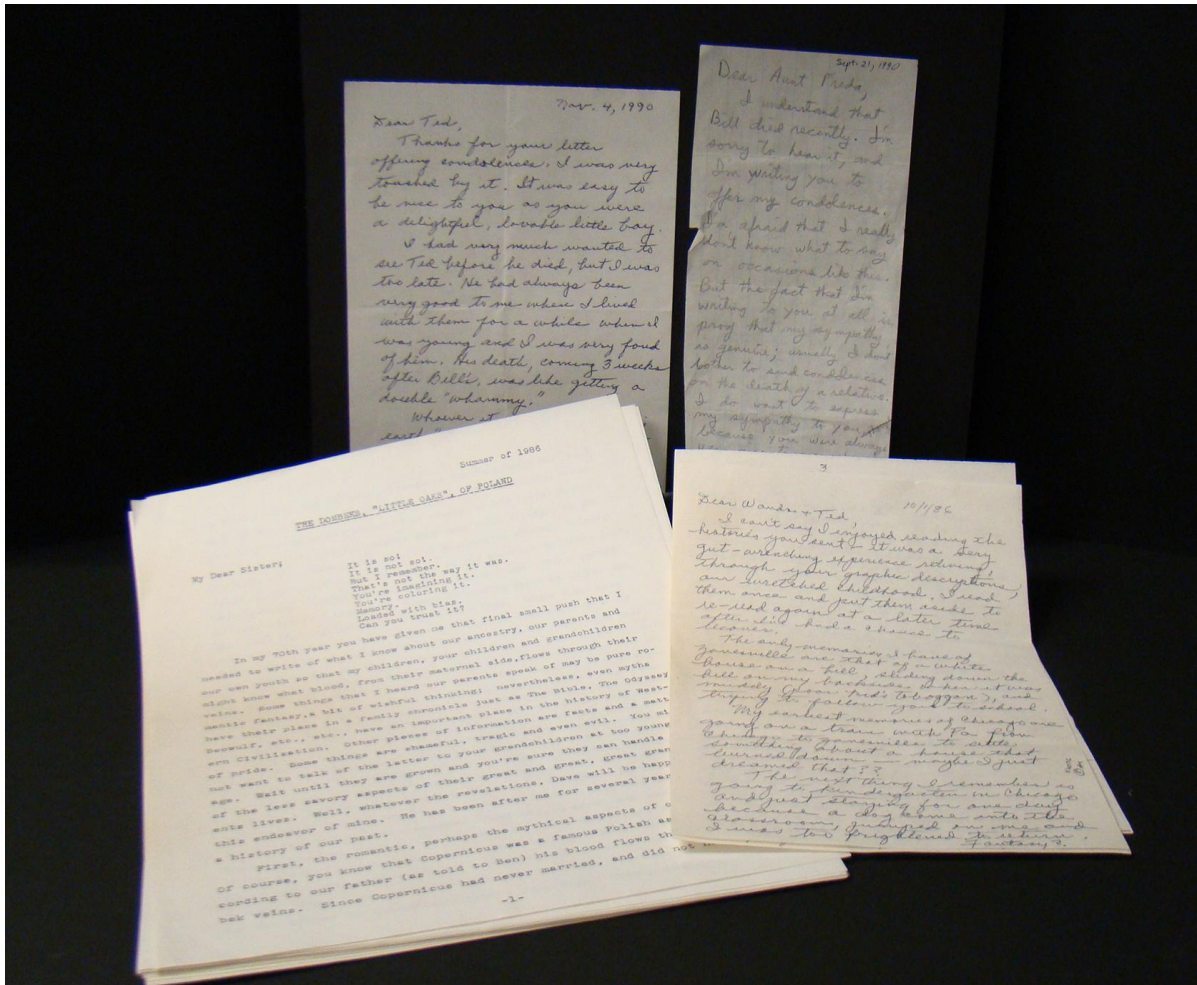 Nov. 4, 1990
Dear Ted,
Thanks for your letter
offering condolences. I was very
touched by it. It was easy to
be nice to you as you were
a delightful, lovable little boy.
I had very much wanted to
see Ted before he died, but I was
too late. He had always been
very good to me when I lived
with them for a while when I
was young and I was very fond
of him. His death, coming 3 weeks
after Bill's, was like getting a
double "whammy."
Whoever it
earth
Sept. 21, 1990
Dear Aunt Freda,
I understand that
Bill died recently. I'm
sorry to hear it, and
I'm writing you to
offer my condolences.
I'm afraid that I really
don't know what to say
on occasions like this.
But the fact that I'm
writing to you at all is
proof that my sympathy
is genuine; usually I don't
bother to send condolences
on the death of a relative.
I do want to express
my sympathy to you
because you were always
Summer of 1986
THE DOMBEKS, "LITTLE OAKS", OF POLAND
My Dear Sister;
It is so!
It is not so!.
But I remember.
That's not the way it was.
You're imagining it.
You're coloring it.
Memory.
Loaded with bias.
Can you trust it?
In my 70th year you have given me that final small push that I
needed to write of what I know about our ancestry, our parents and
our own youth so that my children, your children and grandchildren
might know what blood, from their maternal side, flows through their
veins. Some things that I heard our parents speak of may be pure ro-
mantic fantasy, a bit of wishful thinking; nevertheless, even myths
have their place in a family chronicle just as The Bible, The Odyssey
Beowulf, etc., etc., have an important place in the history of West-
ern Civilization. Other pieces of information are facts and a matt
of pride. Some things are shameful, tragic and even evil. You mi
not want to talk of the latter to your grandchildren at too young
age. Wait until they are grown and you're sure they can handle
of the less savory aspects of their great and great, great gran
ents lives. Well, whatever the revelations, Dave will be happ
this endeavor of mine. He has been after me for several year
a history of our past.
First, the romantic, perhaps the mythical aspects of
Of course, you know that Copernicus was a famous Polish as
cording to our father (as told to Ben) his blood flows th
bek veins. Since Copernicus had never married, and did not
-1-
3
10/1/86
Dear Wanda & Ted,
I can't say I enjoyed reading the
histories you sent - it was a very
gut-wrenching experience reliving,
through your graphic descriptions,
our wretched childhood. I read
them once and put them aside to
re-read again at a later time
after I've had a chance to
recover.
The only memories I have of
Zanesville are that of a white
house on a hill, sliding down the
hill on my backside when it was
muddy (poor kid's toboggan), and
trying to follow you to school.
My earliest memories of Chicago are
going on a train with Pa from
Chicago to Zanesville to settle
something about a house that
burned down - maybe I just
dreamed that??
The next thing I remember is
going to kindergarten in Chicago
and just staying for one day
because a dog came into the
classroom, jumped on me and
I was too frightened to return.
Fantasy?